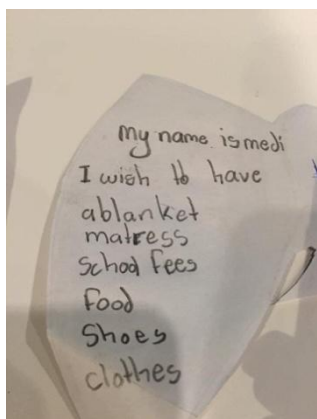 my name is medi
I wish to have
ablanket
matress
school fees
food
Shoes
clothes